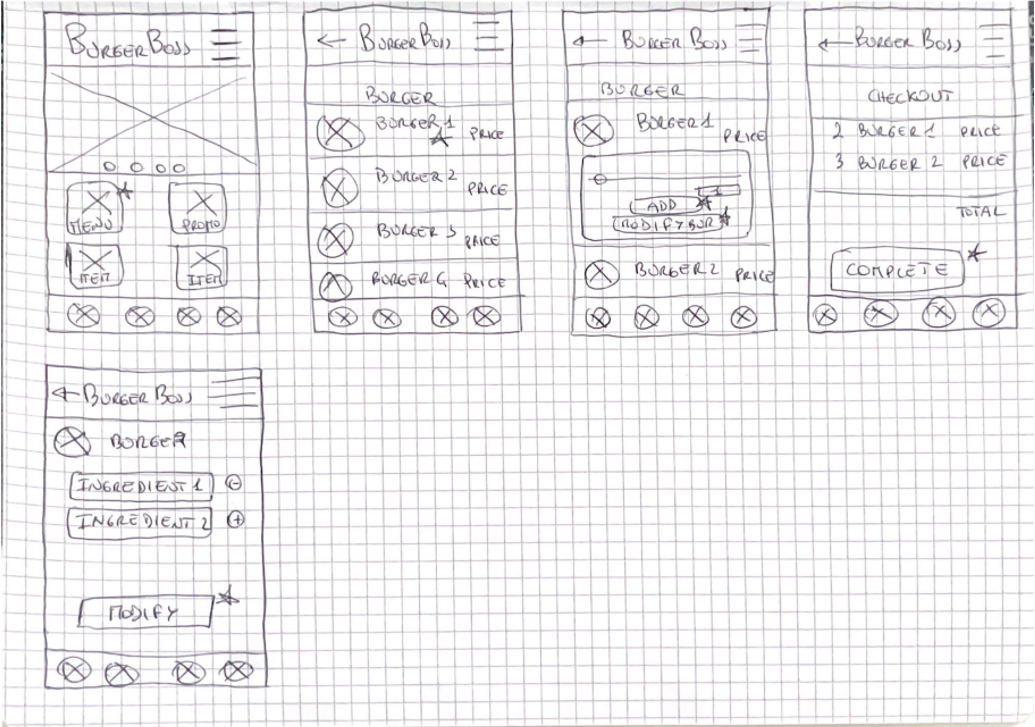 BURGER BOSS
MENU
PROMO
ITEM
ITEM
← BURGER BOSS
BURGER
BURGER 1 PRICE
BURGER 2 PRICE
BURGER 3 PRICE
BURGER 4 PRICE
← BURGER BOSS
BURGER
BURGER 1 PRICE
1
ADD
MODIFY BUR
BURGER 2 PRICE
← BURGER BOSS
CHECKOUT
2 BURGER 1 PRICE
3 BURGER 2 PRICE
TOTAL
COMPLETE
← BURGER BOSS
BURGER
INGREDIENT 1 -
INGREDIENT 2 +
MODIFY